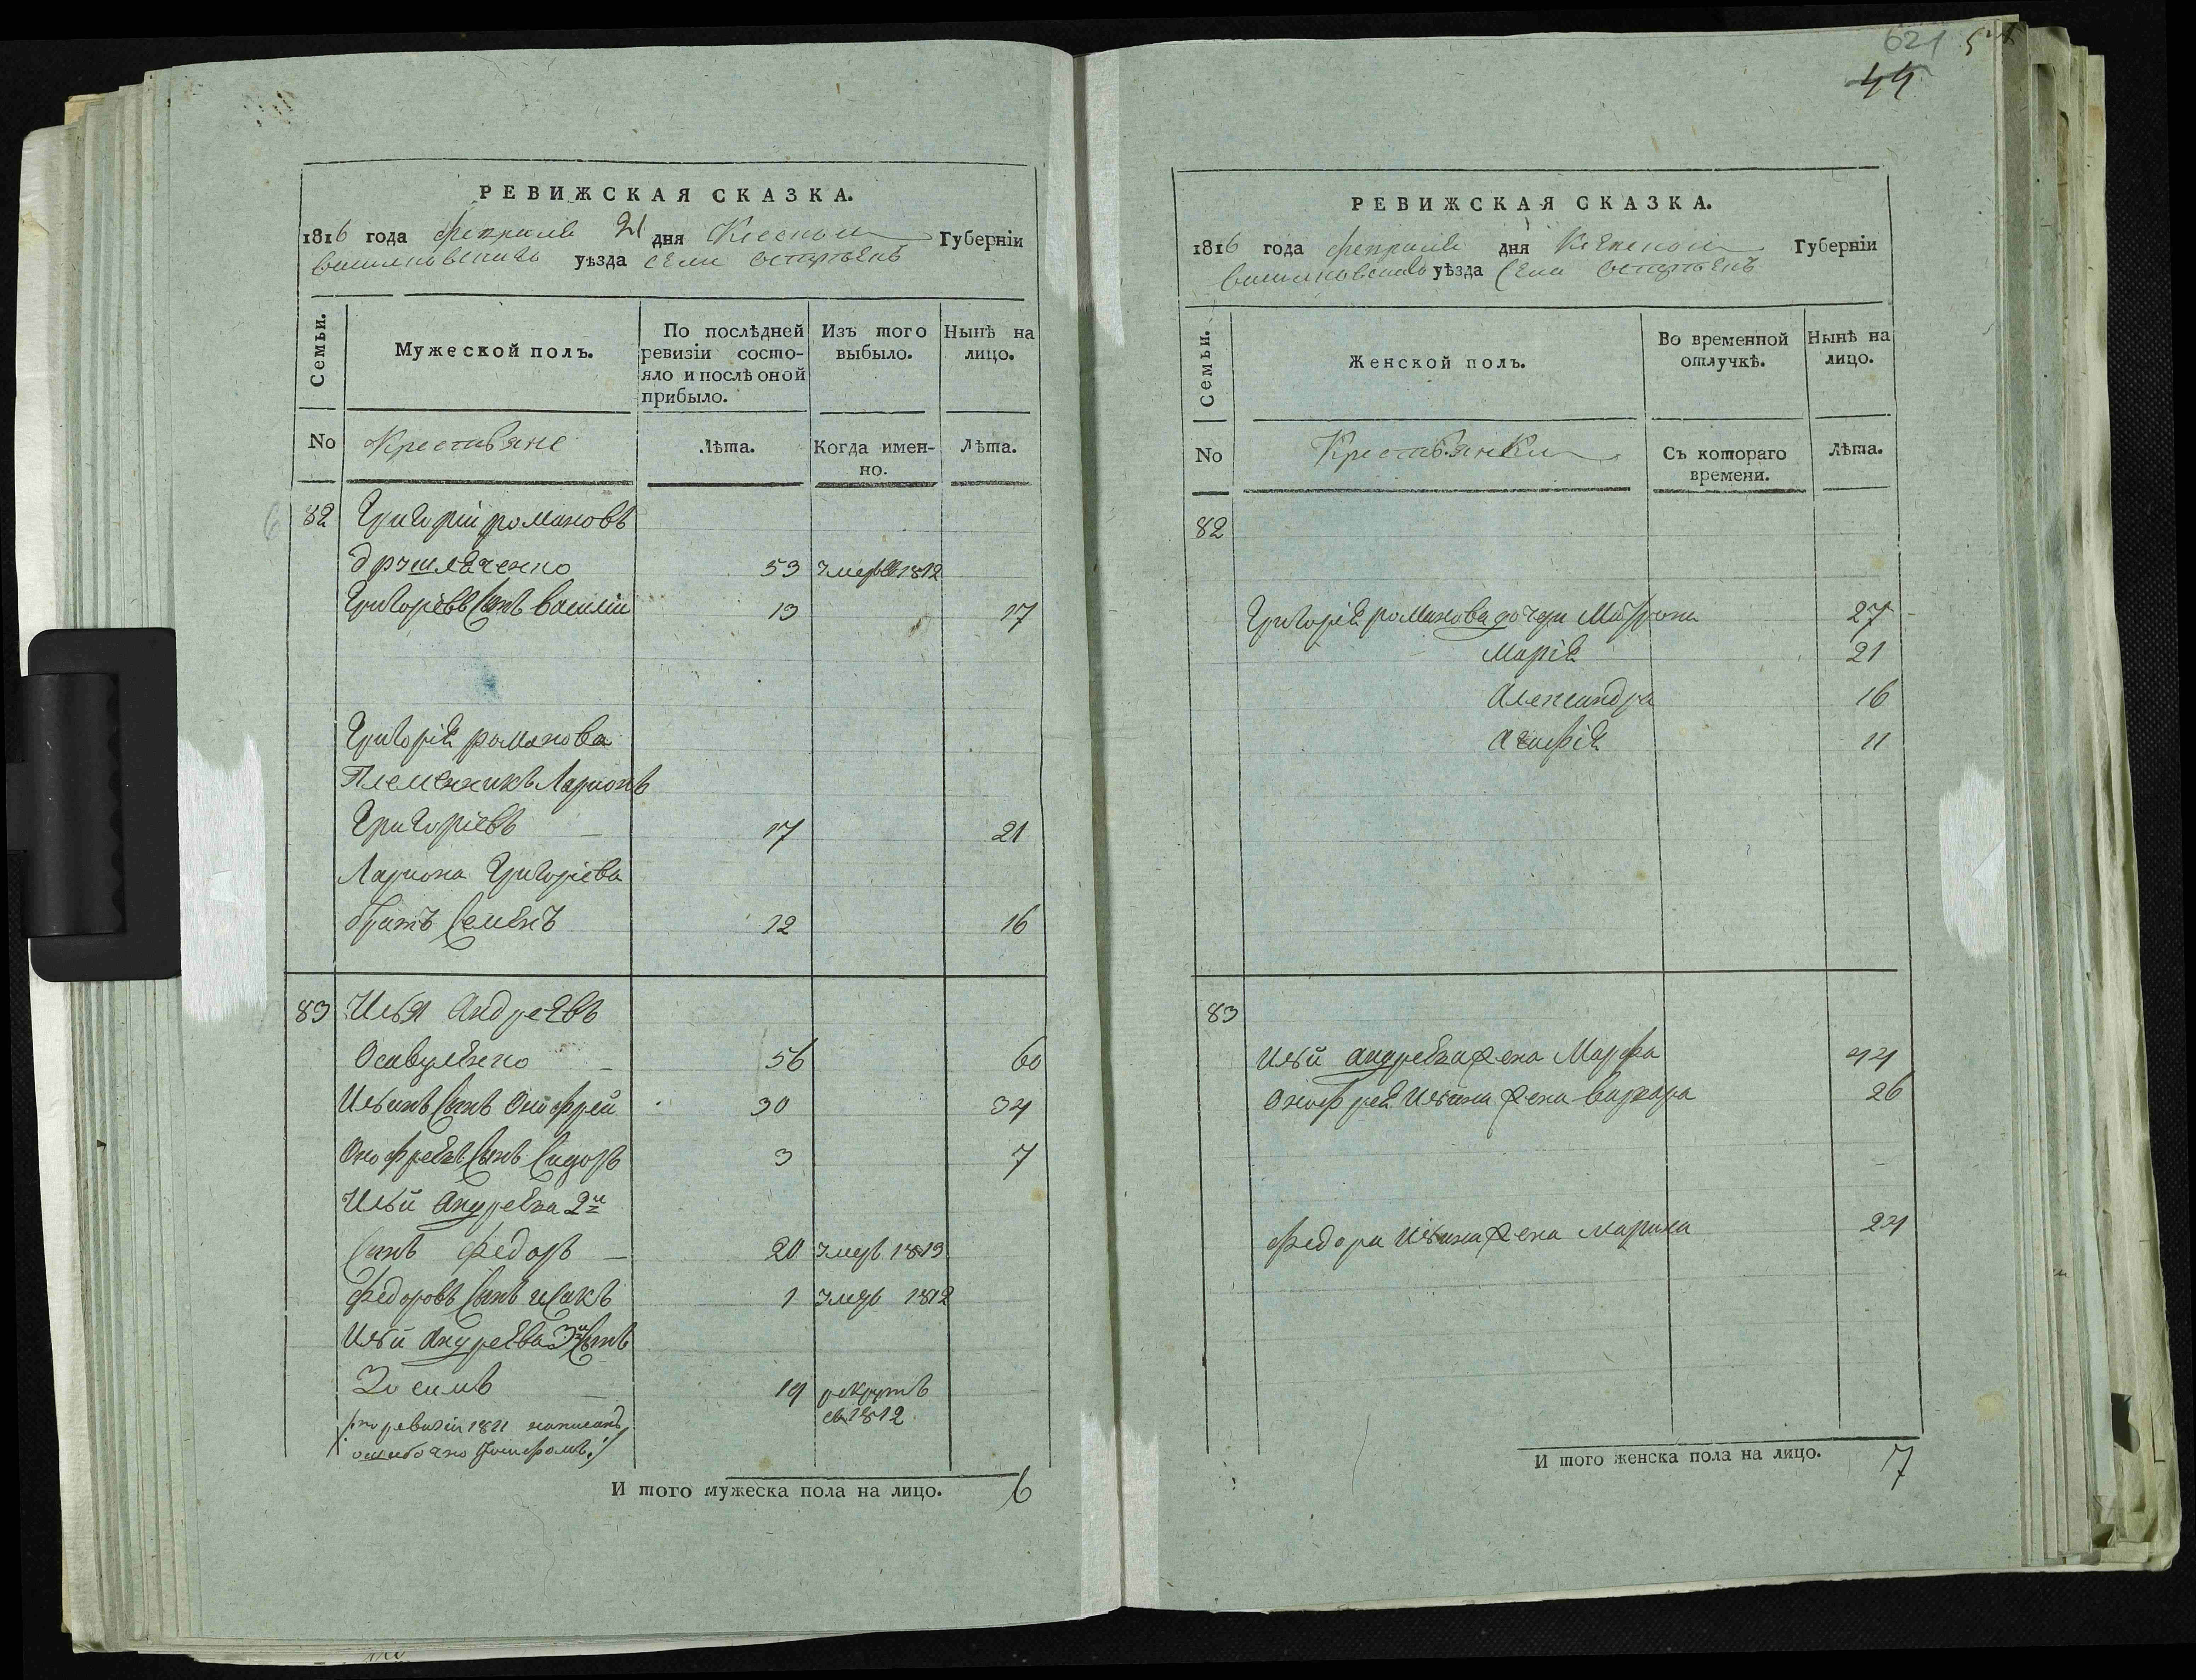 РЕВИЖСКАЯ СКАЗКА.
1816 года февраля 21 дня Киевской Губерніи
васильковского уѣзда села
Семьи.
Мужеской полъ.
По послѣдней ревизіи состо-
яло и послѣ оной
прибыло.
Изъ того выбыло.
Нынѣ на лицо.
No Крестьяне Лѣта. Когда имен-
но. Лѣта.
82 Григорій романовъ
53 умеръ 1812
Григорьевъ Сынъ василій 13 17
Григорія романова
Племенникъ Ларионъ
Григоріевъ 17 21
Лариона Григоріева
братъ Семенъ 12 16
83 Илья Андреевъ
Осавуленко 56 60
Ильинъ Сынъ Онофрей 30 34
Онофреевъ Сынъ Сидоръ 3 7
Ильи Андреева 2й
Сынъ федоръ 20 умеръ 1813
федоровъ Сынъ исакъ 1 умеръ 1812
Ильи Андреева 3й Сынъ
Зосимъ 19 рекрутъ
въ 1812
по ревизіи 1811 написанъ
ошибочно
И того мужеска пола на лицо. 6
621
44
РЕВИЖСКАЯ СКАЗКА.
1816 года февраля дня Киевской Губерніи
васильковского уѣзда села
Семьи.
Женской полъ.
Во временной отлучкѣ.
Нынѣ на лицо.
No Крестьянки Съ котораго
времени. Лѣта.
82
Григорія романова дочери Матрона 27
Марія 21
Александра 16
Агафія 11
83
Ильи андреева жена Марфа 44
Онофрея Ильина жена варвара 26
федора Ильина жена марина 24
И того женска пола на лицо. 7